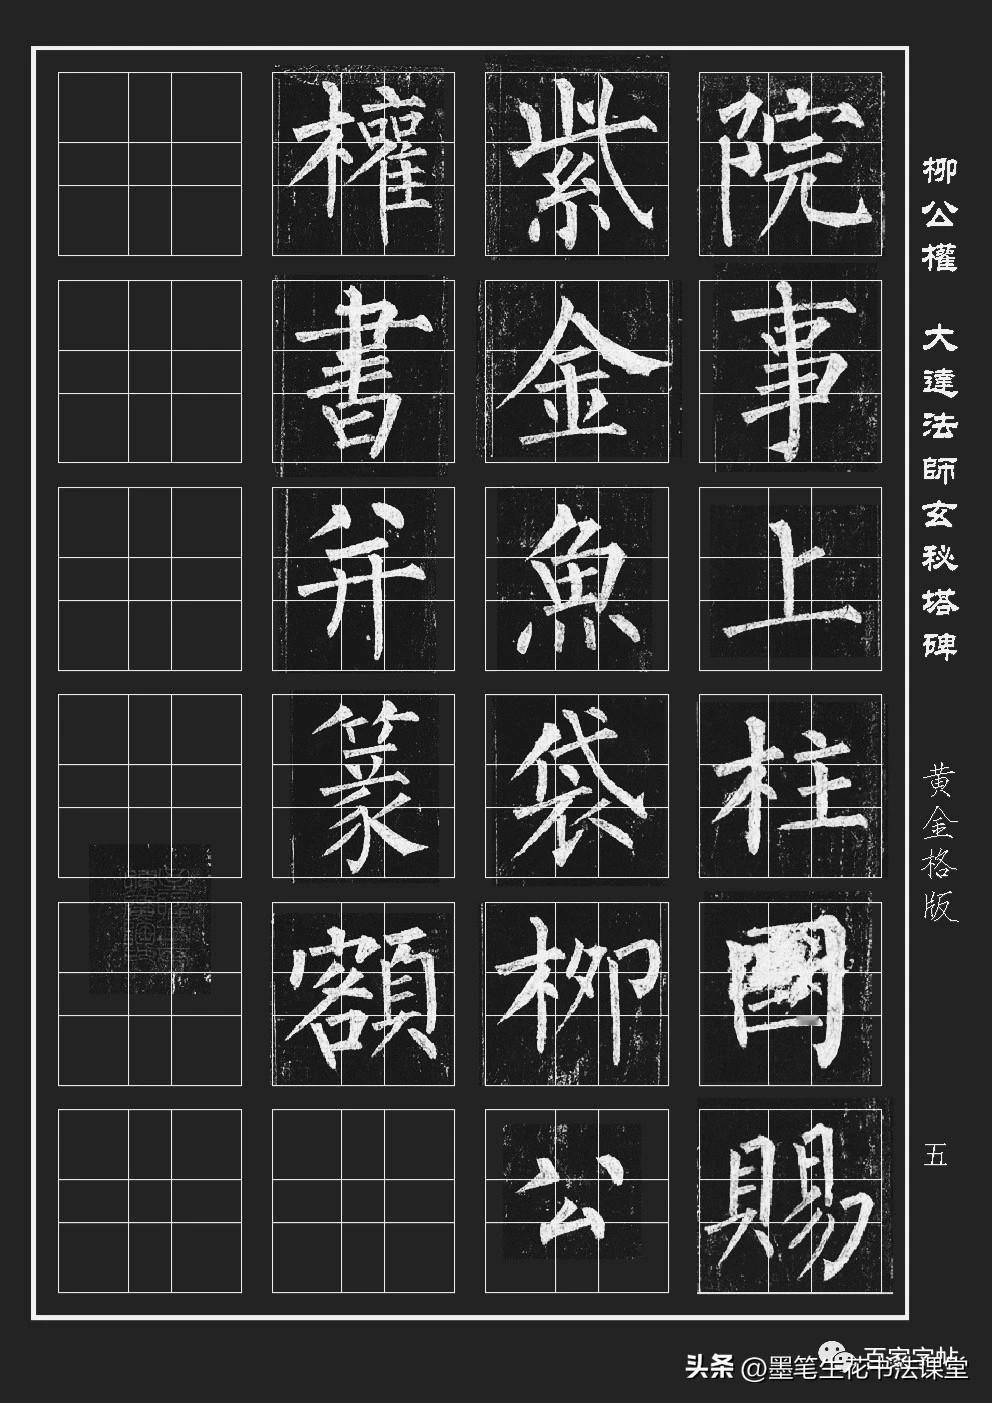 院事上柱國賜
紫金魚袋柳公
權書并篆額
柳公權 大達法師玄秘塔碑 黄金格版 五
百家字帖
头条 @墨笔生花书法课堂